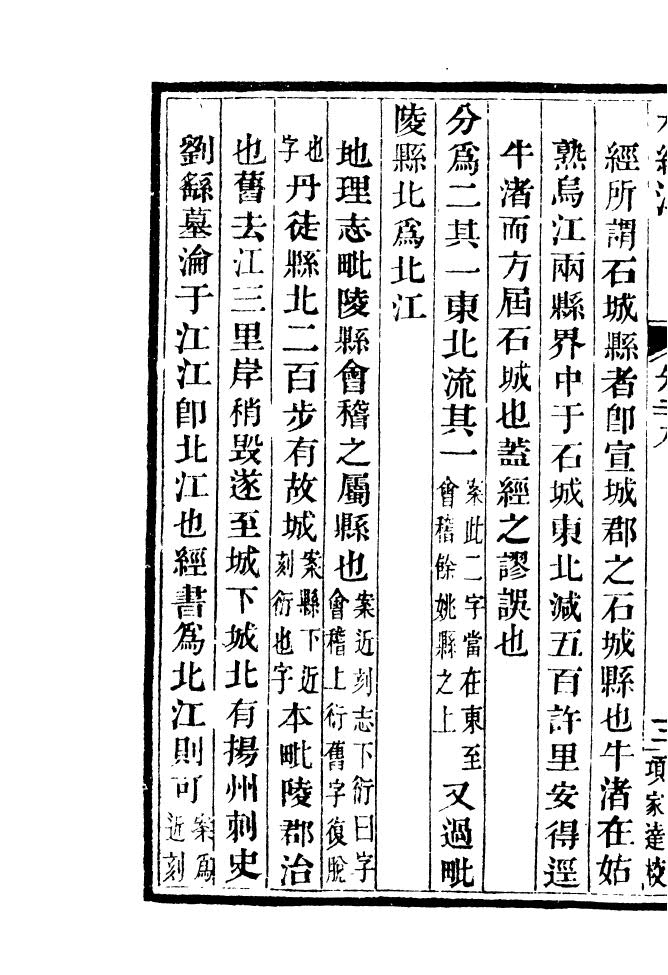 經所謂石城縣者卽宣城郡之石城縣也牛渚在姑
熟烏江兩縣界中于石城東北減五百許里安得逕
牛渚而方屆石城也蓋經之謬誤也
分爲二其一東北流其一案此二字當在東至會稽餘姚縣之上又過毗
陵縣北爲北江
地理志毗陵縣會稽之屬縣也案近刻志下衍曰字會稽上衍舊字復脫
也字丹徒縣北二百步有故城案縣下近刻衍也字本毗陵郡治
也舊去江三里岸稍毀遂至城下城北有揚州刺史
劉繇墓淪于江江卽北江也經書爲北江則可案爲近刻
三
項家達校